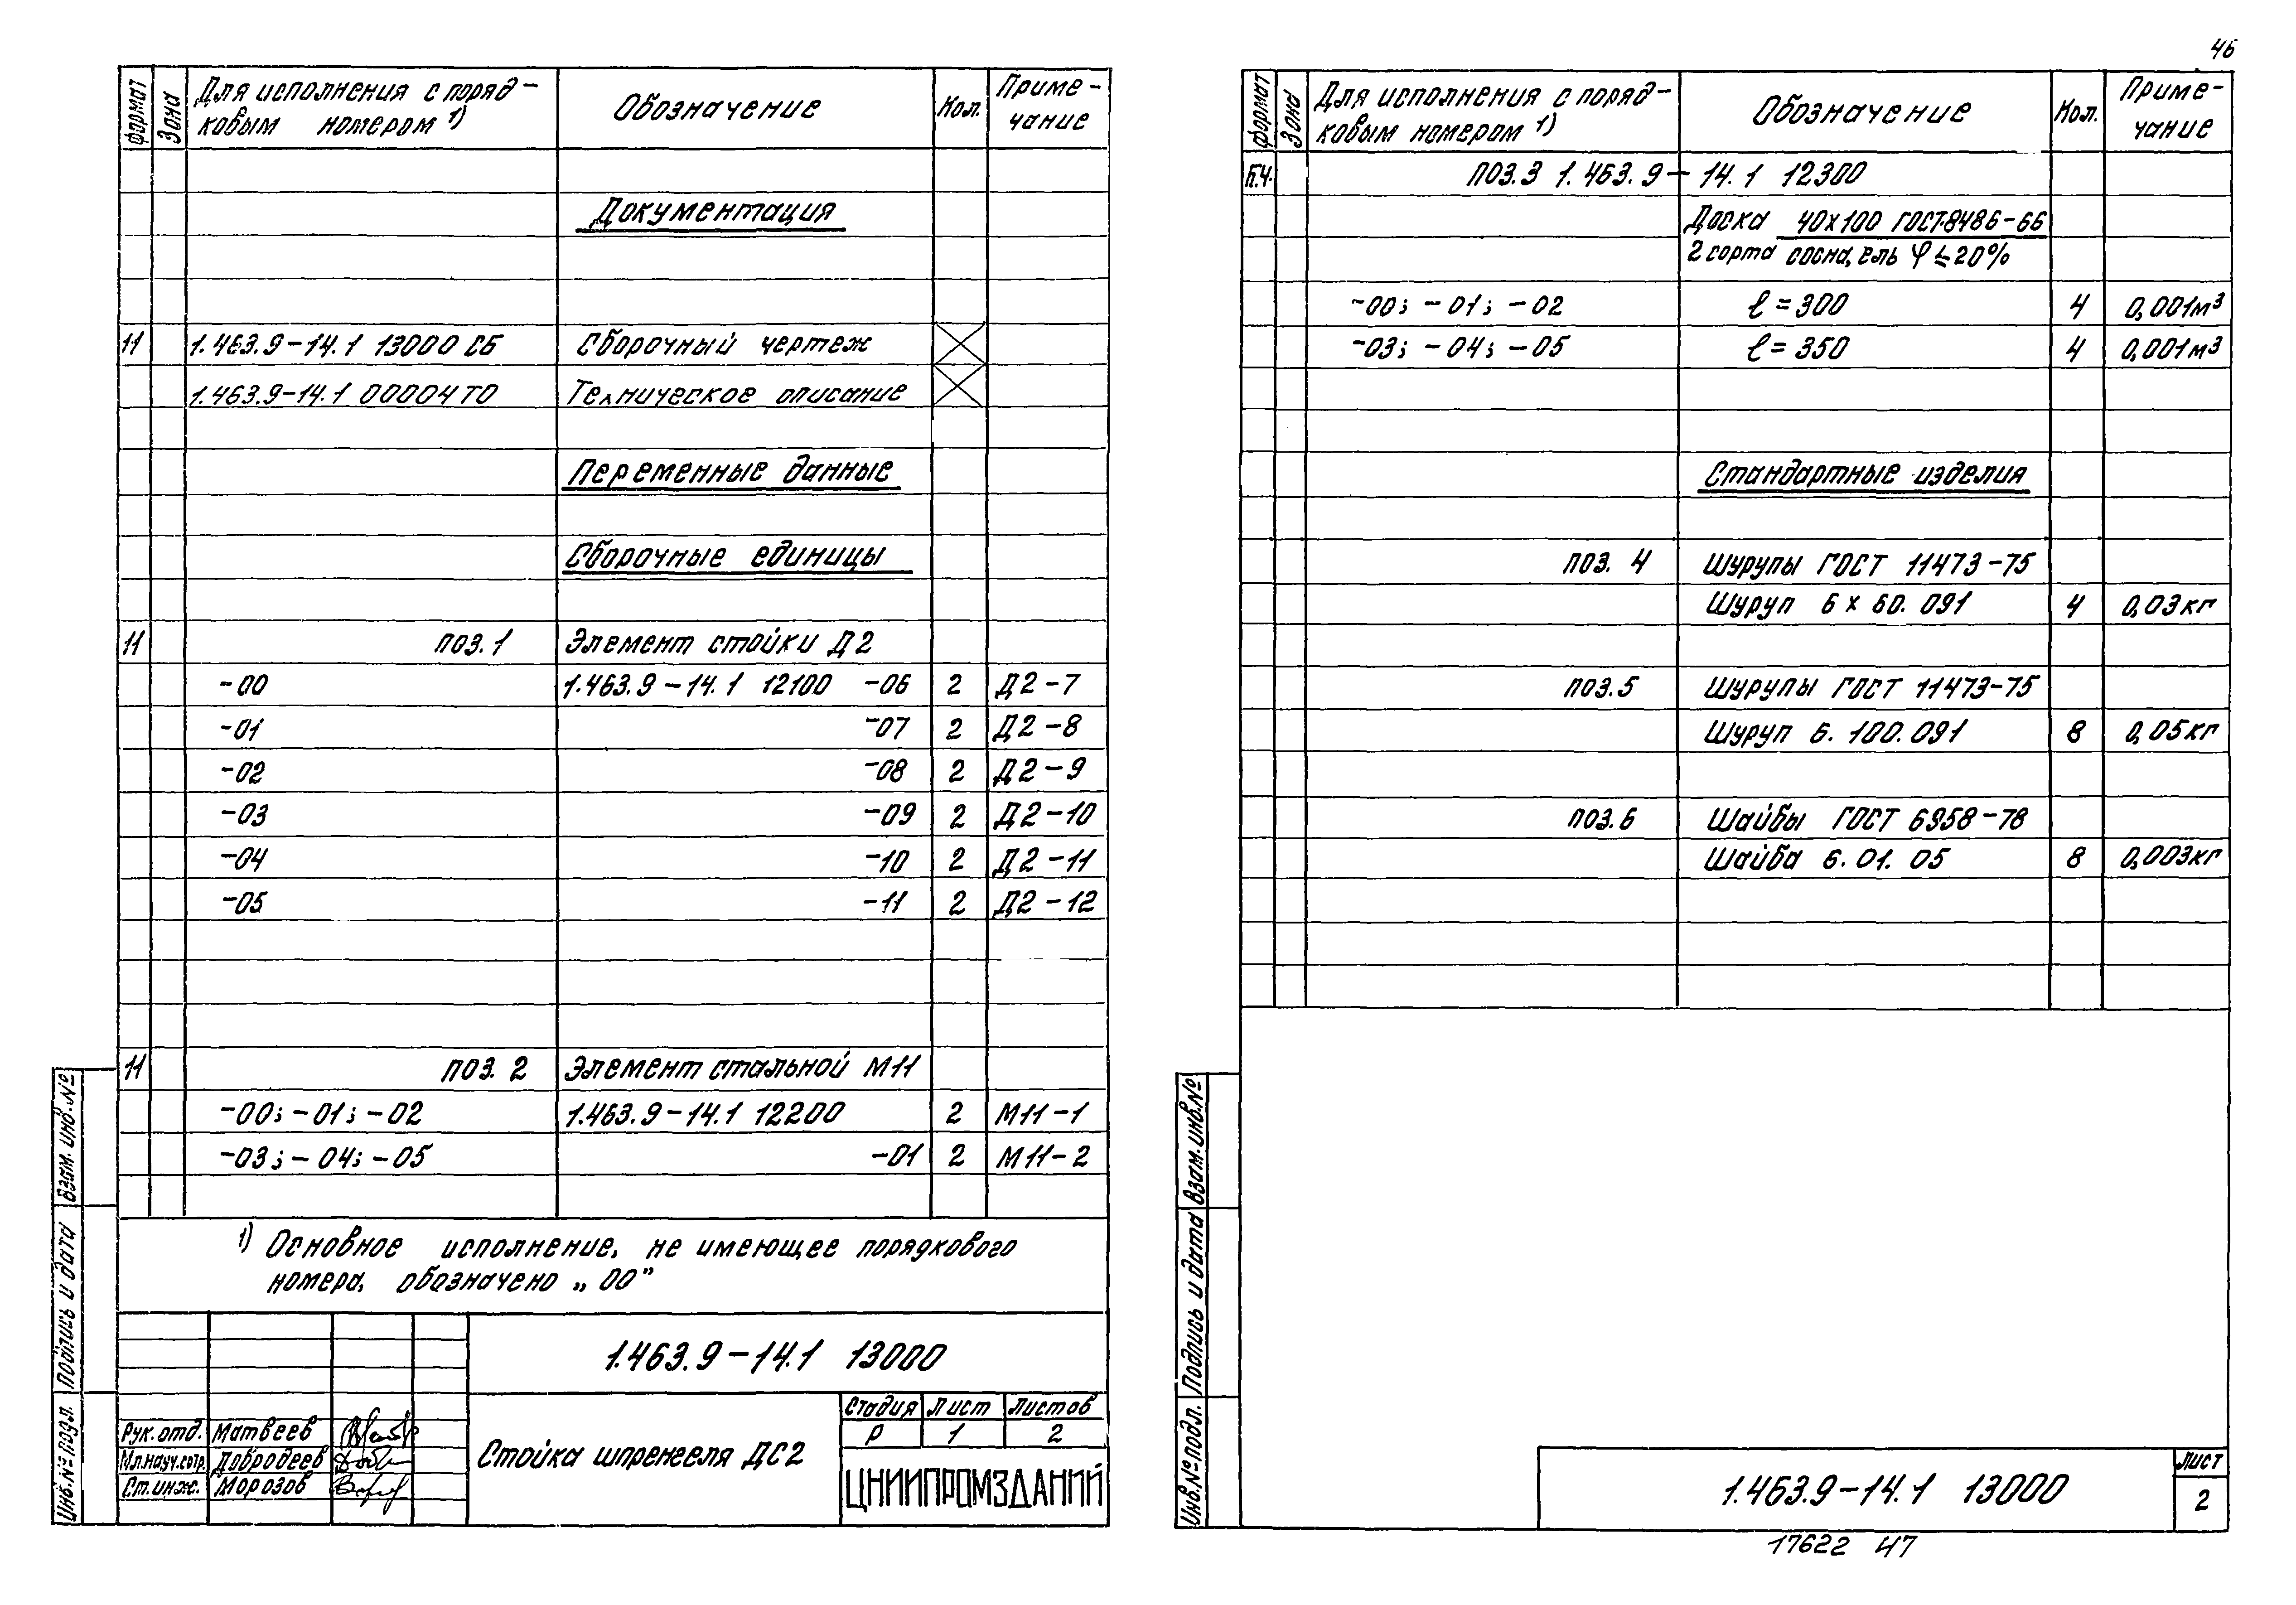 46
формат
Зона
Для исполнения с поряд-
ковым номером 1)
Обозначение
Кол.
Приме-
чание
Документация
11 1.463.9-14.1 13000 СБ Сборочный чертеж
1.463.9-14.1 00004 ТО Техническое описание
Переменные данные
Сборочные единицы
11 поз. 1 Элемент стойки Д2
-00 1.463.9-14.1 12100 -06 2 Д2-7
-01 -07 2 Д2-8
-02 -08 2 Д2-9
-03 -09 2 Д2-10
-04 -10 2 Д2-11
-05 -11 2 Д2-12
11 поз. 2 Элемент стальной М11
-00; -01; -02 1.463.9-14.1 12200 2 М11-1
-03; -04; -05 -01 2 М11-2
1) Основное исполнение, не имеющее порядкового
номера, обозначено „00”
1.463.9-14.1 13000
Стойка шпренгеля ДС2
Стадия Лист Листов
Р 1 2
ЦНИИПРОМЗДАНИЙ
Рук. отд. Матвеев
Мл.науч.сотр. Добродеев
Ст. инж. Морозов
Инв.№ подл. Подпись и дата Взам. инв. №
формат
Зона
Для исполнения с поряд-
ковым номером 1)
Обозначение
Кол.
Приме-
чание
Б.Ч. поз. 3 1.463.9-14.1 12300
Доска 40х100 ГОСТ 8486-66
2 сорта сосна, ель φ ≤ 20%
-00; -01; -02 ℓ = 300 4 0,001м³
-03; -04; -05 ℓ = 350 4 0,001м³
Стандартные изделия
поз. 4 Шурупы ГОСТ 11473-75
Шуруп 6 х 60. 091 4 0,03кг
поз. 5 Шурупы ГОСТ 11473-75
Шуруп 6. 100. 091 8 0,05кг
поз. 6 Шайбы ГОСТ 6958-78
Шайба 6. 01. 05 8 0,003кг
Инв.№ подл. Подпись и дата Взам. инв.№
1.463.9-14.1 13000
Лист
2
17622 47